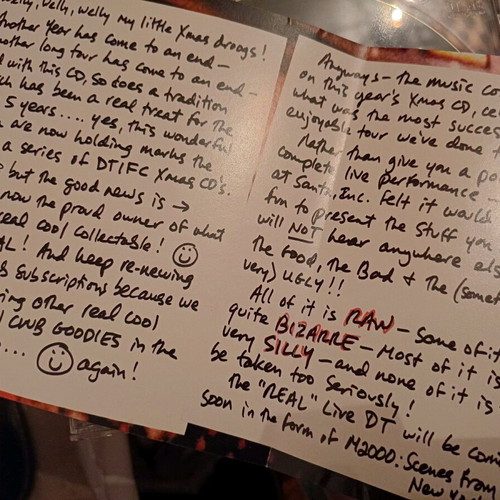 Welly, Welly, Welly my little Xmas droogs!
Another year has come to an end —
another long tour has come to an end —
d with this CD, so does a tradition
ch has been a real treat for the
5 years.... yes, this wonderful
are now holding marks the
a series of DTIFC Xmas CD's.
but the good news is →
now the proud owner of what
real cool collectable! ☺
AL! And keep re-newing
b subscriptions because we
ring other real cool
CLUB GOODIES in the
.... ☺ again!
Anyways — the music co
on this year's Xmas CD, ce
what was the most succes
enjoyable tour we've done t
Rather than give you a po
complete live performance
at Santa, Inc. felt it would
fun to present the stuff you
will NOT hear anywhere els
the Good, the Bad & the (somet
very) UGLY!!
All of it is RAW — Some of it
quite BIZARRE — Most of it is
very SILLY — and none of it is
be taken too seriously!
the "REAL" Live DT will be comi
soon in the form of M2000: Scenes From
New Yo